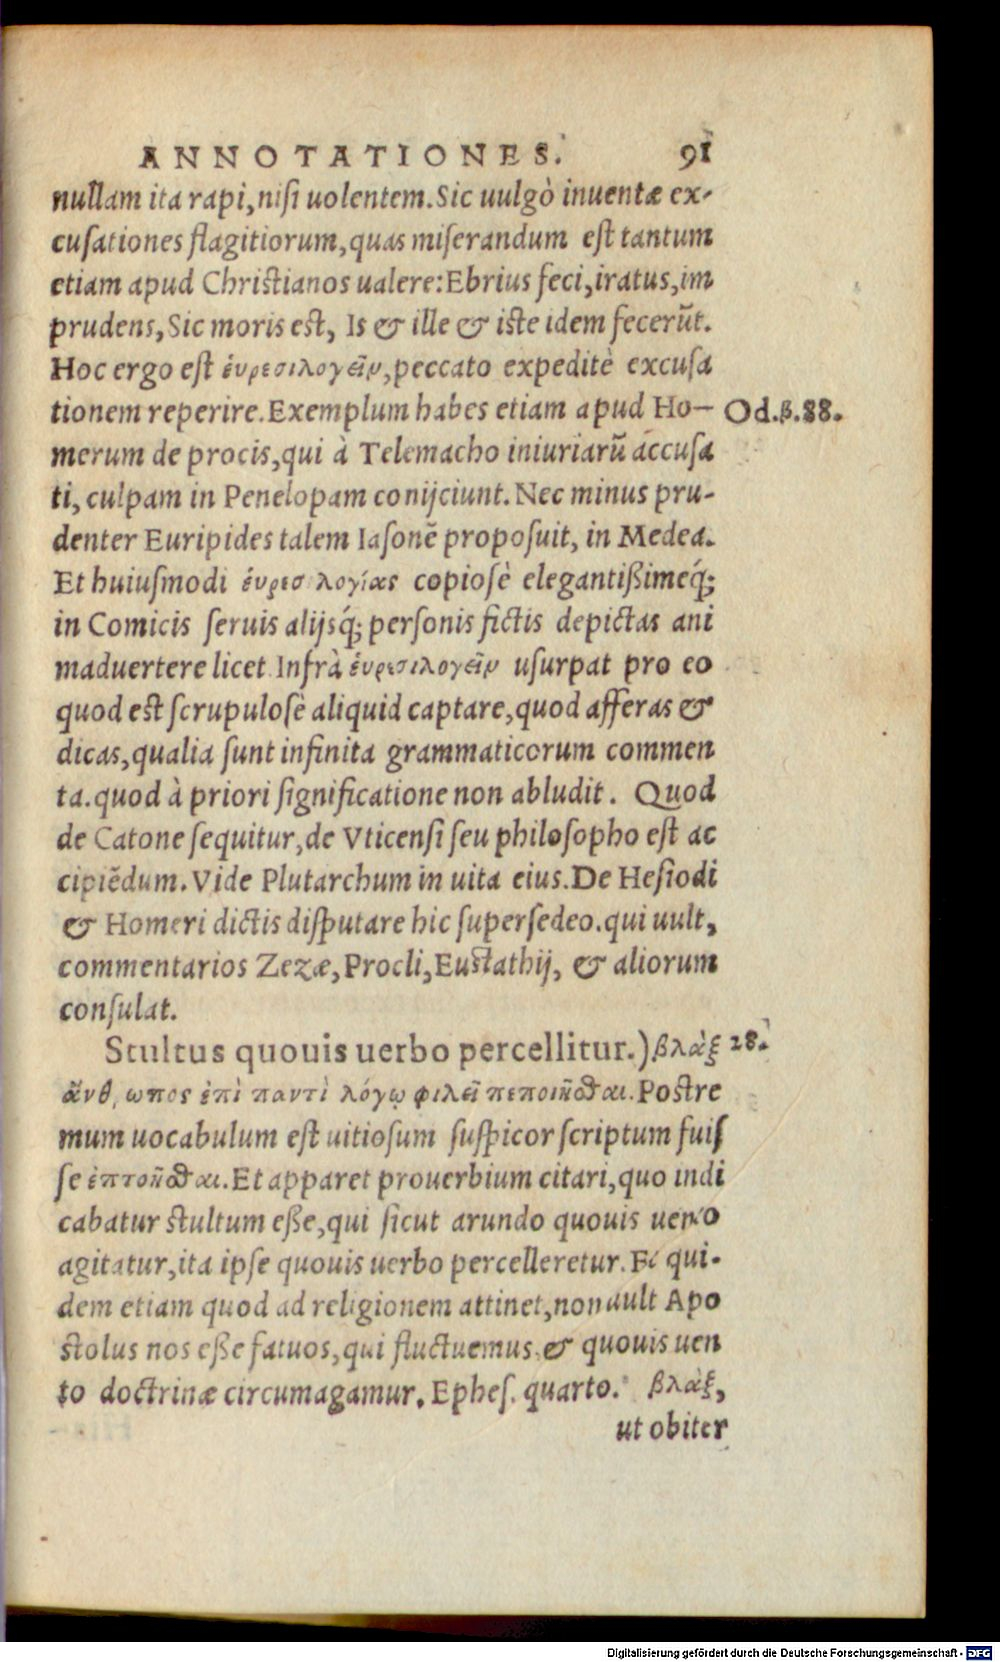 ANNOTATIONES. 91
nullam ita rapi, nisi uolentem. Sic uulgò inuentæ ex-
cusationes flagitiorum, quas miserandum est tantum
etiam apud Christianos ualere: Ebrius feci, iratus, im
prudens, Sic moris est, Is & ille & iste idem fecerũt.
Hoc ergo est ἑυρεσιλογεῖν, peccato expeditè excusa
tionem reperire. Exemplum habes etiam apud Ho- Od.β.88.
merum de procis, qui à Telemacho iniuriarũ accusa
ti, culpam in Penelopam conijciunt. Nec minus pru-
denter Euripides talem Iasonẽ proposuit, in Medea.
Et huiusmodi ἑυρεσ λογίας copiosè elegantißimeq́;
in Comicis seruis alijsq́; personis fictis depictas ani
maduertere licet. Infrà ἑυρεσιλογεῖν usurpat pro eo
quod est scrupulosè aliquid captare, quod afferas &
dicas, qualia sunt infinita grammaticorum commen
ta. quod à priori significatione non abludit. Quod
de Catone sequitur, de Vticensi seu philosopho est ac
cipiẽdum. Vide Plutarchum in uita eius. De Hesiodi
& Homeri dictis disputare hic supersedeo. qui uult,
commentarios Zezæ, Procli, Eustathij, & aliorum
consulat.
Stultus quouis uerbo percellitur.) βλὰξ 28.
ἄνθ ωπος ἐπὶ παντὶ λόγῳ φιλεῖ πεποιῆσθαι. Postre
mum uocabulum est uitiosum suspicor scriptum fuis
se ἐπτοῆσθαι. Et apparet prouerbium citari, quo indi
cabatur stultum eße, qui sicut arundo quouis uento
agitatur, ita ipse quouis uerbo percelleretur. Et qui-
dem etiam quod ad religionem attinet, non uult Apo
stolus nos eße fatuos, qui fluctuemus & quouis uen
to doctrinæ circumagamur. Ephes. quarto. βλὰξ,
ut obiter
Digitalisierung gefördert durch die Deutsche Forschungsgemeinschaft - DFG